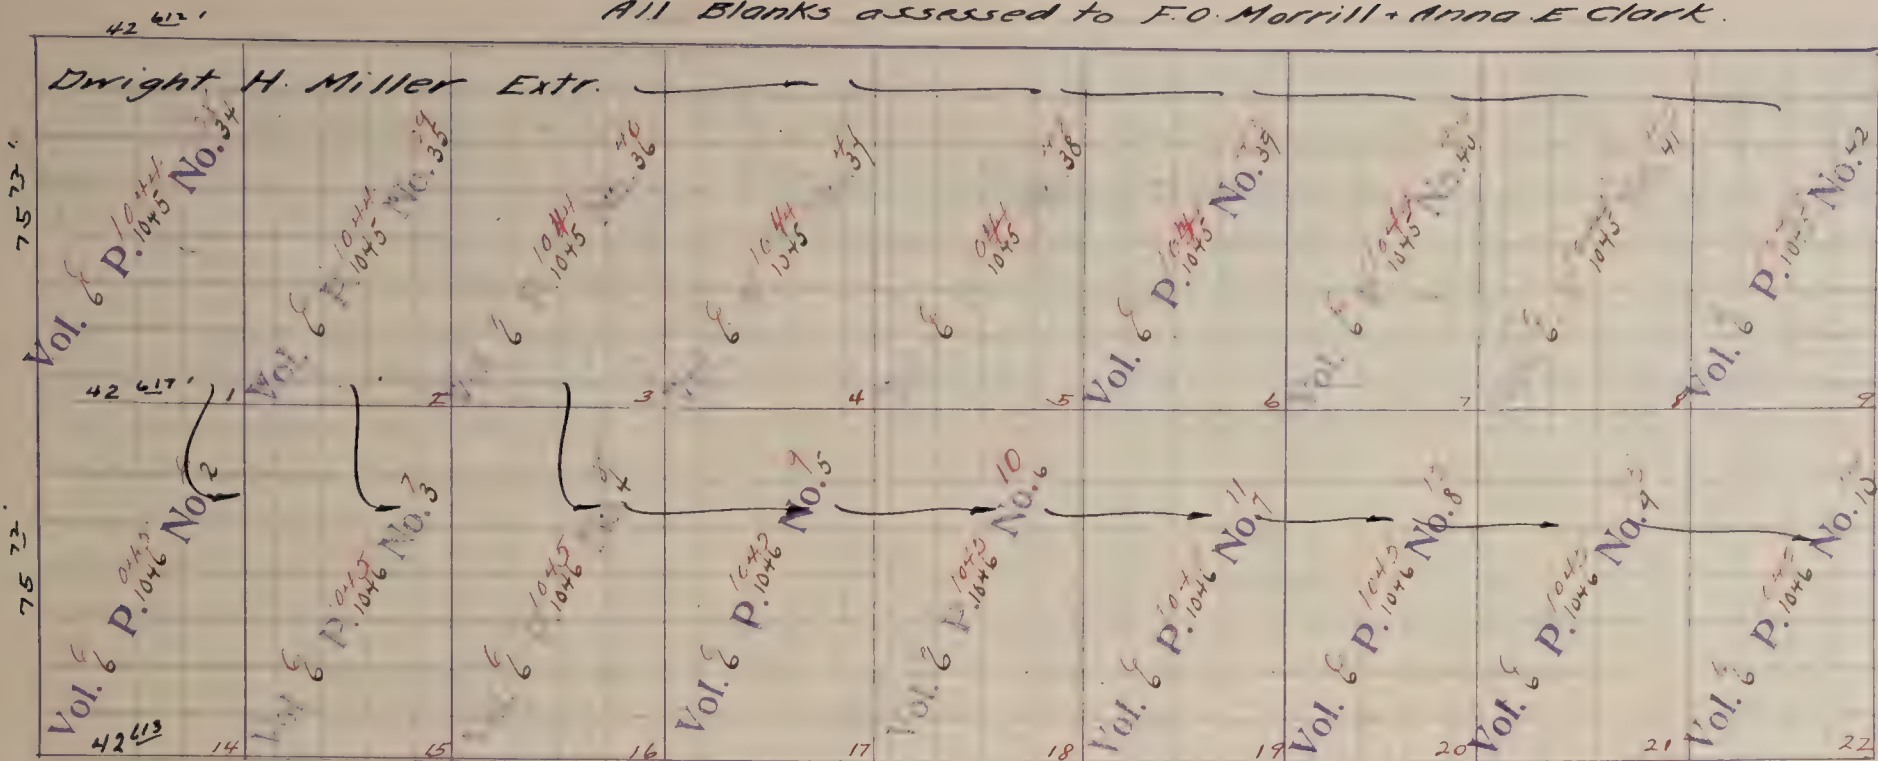 42 612'
All Blanks assessed to F.O. Morrill + Anna E Clark.
Dwight H. Miller Extr.
75 73'
Vol. 6 P. 1044 1045 No. 34
Vol. 6 P. 1044 1045 No. 35
6 P. 1044 1045 No. 36
6 1044 1045 37
6 1045 38
Vol. 6 P. 1044 1045 No. 39
Vol. 6 1044 1045 No. 40
6 1045 41
Vol. 6 P. 1045 No. 42
42 617' 1 2 3 4 5 6 7 8 9
75 72'
Vol. 6 P. 1045 1046 No. 2
Vol. 6 P. 1045 1046 No. 7 3
6 P. 1045 1046 4
Vol. 6 P. 1045 1046 No. 9 5
Vol. 6 P. 1045 1046 No. 10 6
Vol. 6 P. 1046 No. 11 7
Vol. 6 P. 1045 1046 No. 8
Vol. 6 P. 1045 1046 No. 9
Vol. 6 P. 1046 No. 10
42 613 14 15 16 17 18 19 20 21 22